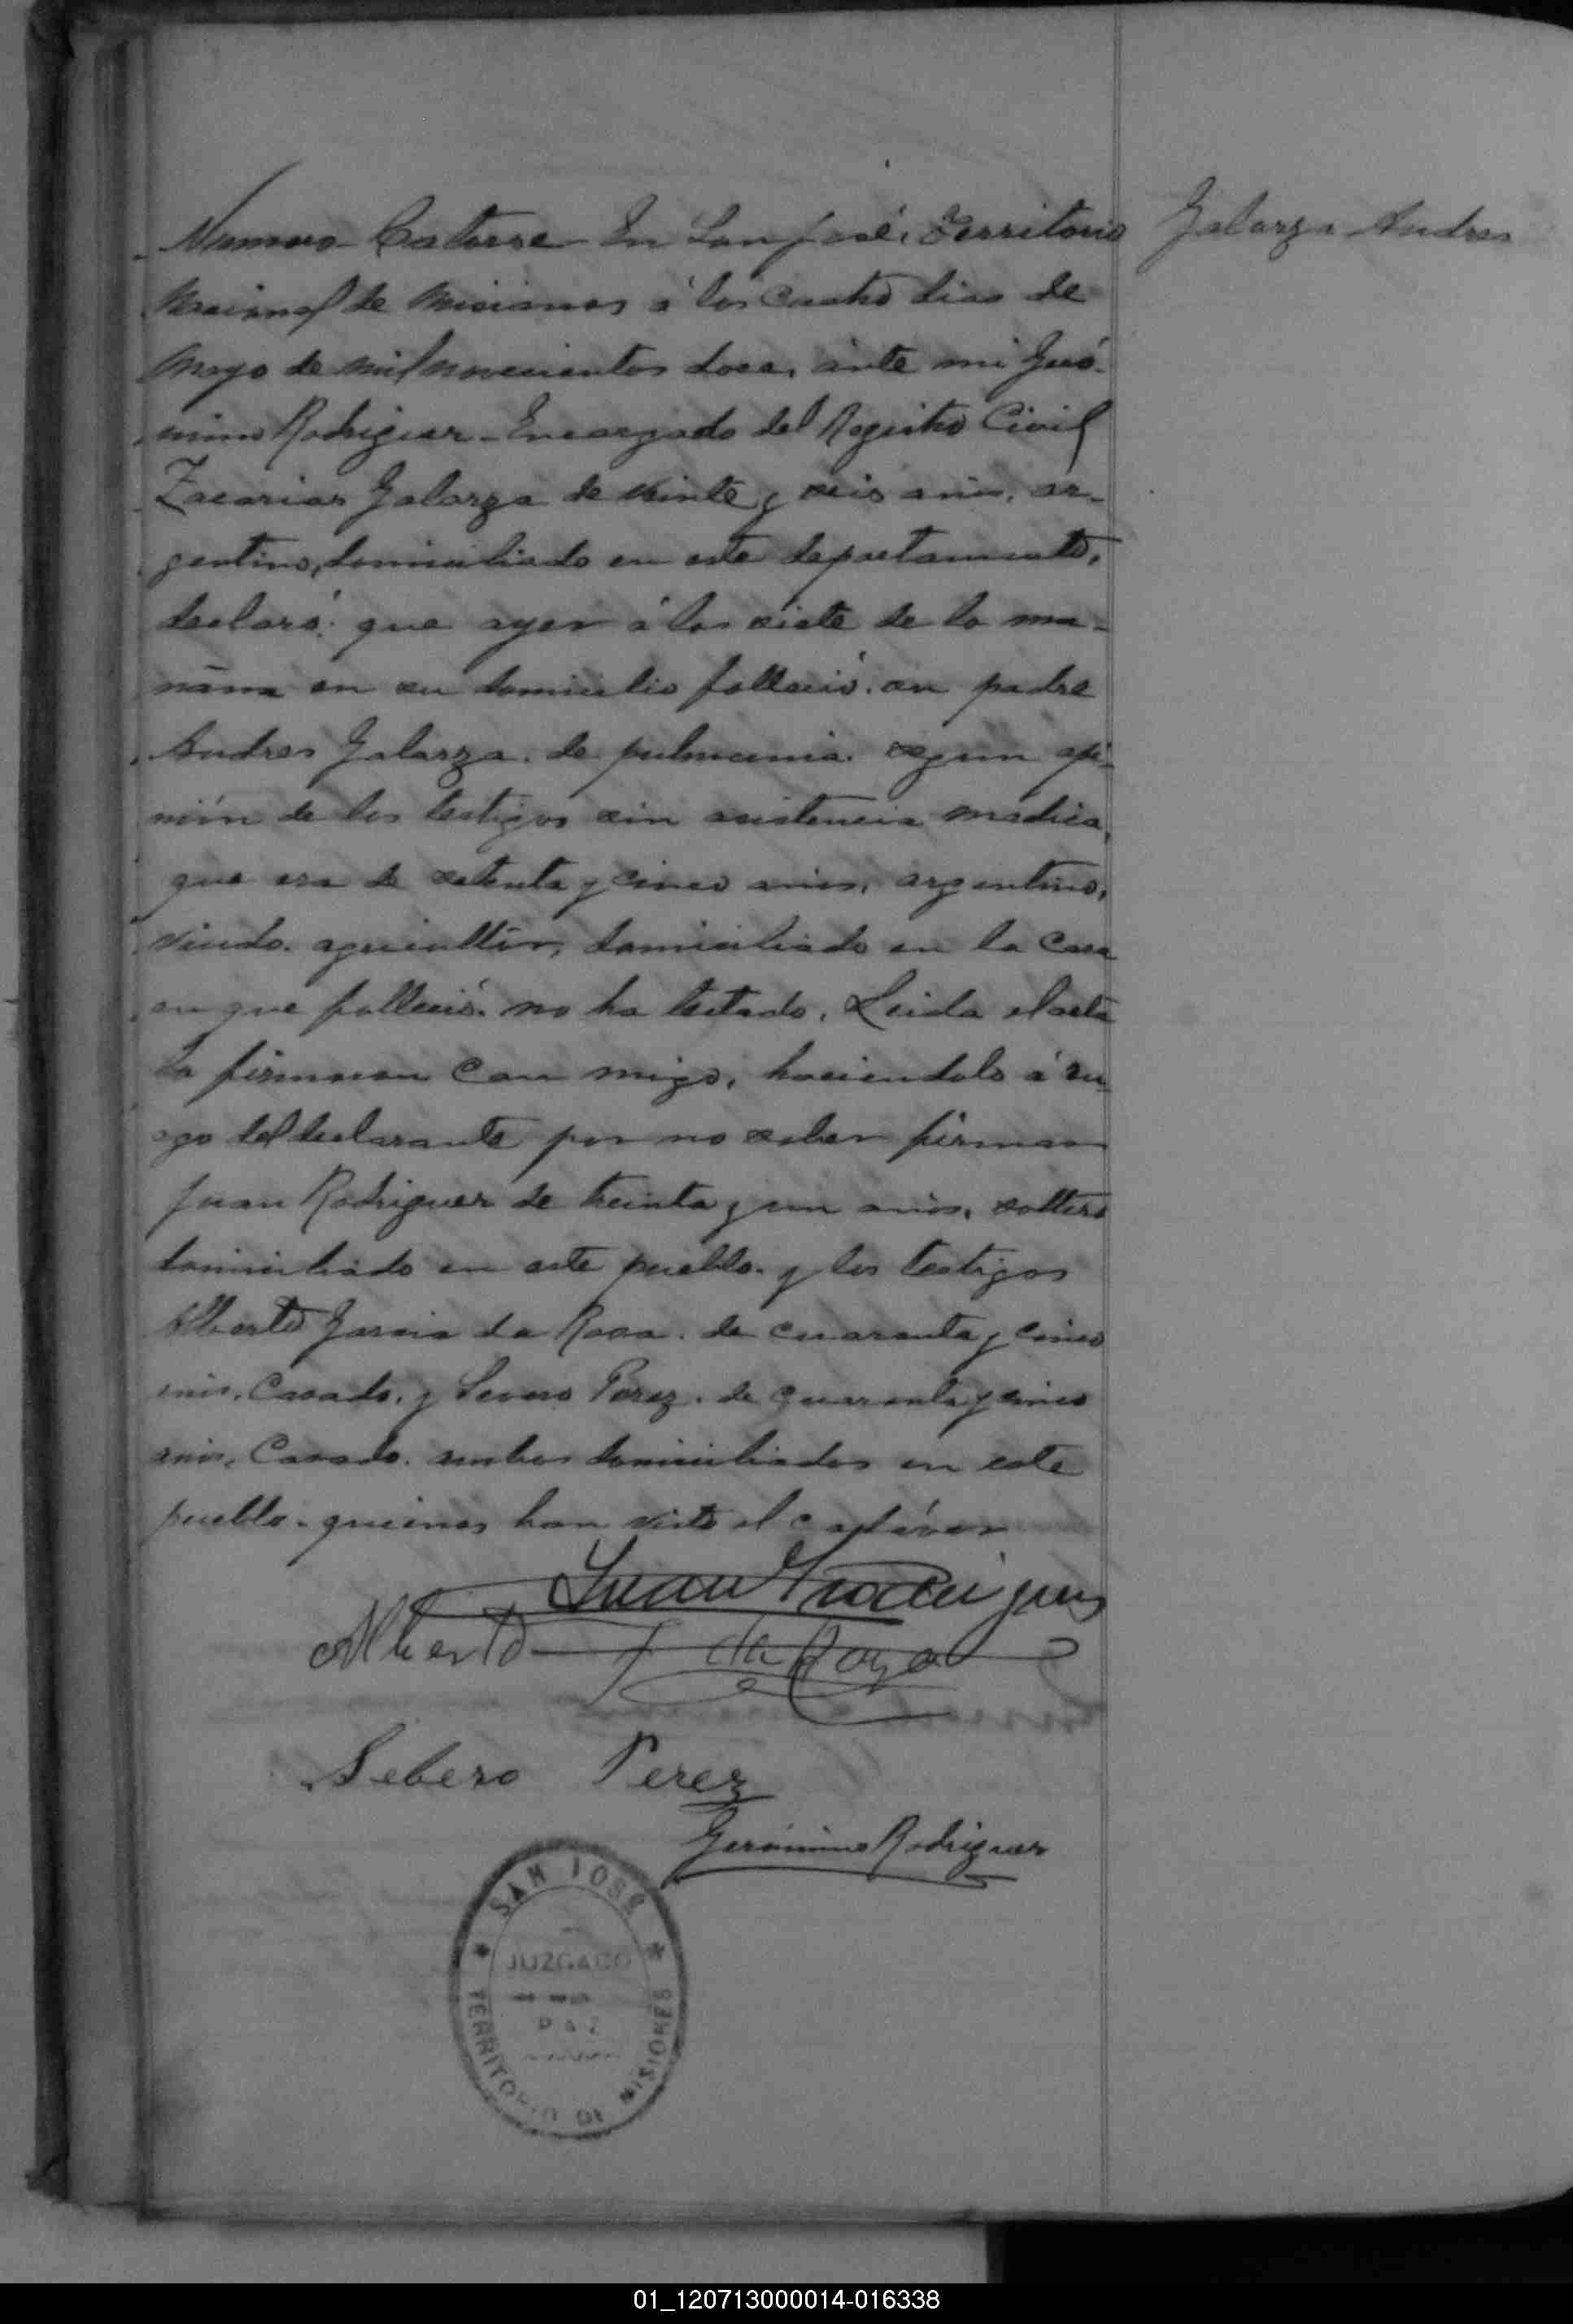 Numero Catorse En San José, Territorio
Galarza Andres
Nacional de Misiones á los Cuatro dias de
Mayo de mil novecientos doce, ante mi Geró-
nimo Rodriguez Encargado del Registro Civil
Zacarias Galarza de veinte y seis años, ar-
gentino, domiciliado en este departamento,
declaró: que ayer á las siete de la ma-
ñana en su domicilio falleció su padre
Andres Galarza de pulmunia segun opi-
nión de los testigos sin asistencia medica,
que era de setenta y cinco años, argentino,
viudo agricultor, domiciliado en la Casa
en que falleció no ha testado. Leida el acta
la firmaron Con migo, haciendolo á ru-
ego del declarante por no saber firmar
Juan Rodriguez de treinta y un años, soltero
domiciliado en este pueblo y los testigos
Alberto Garcia da Rosa de cuarenta y cinco
años, Casado y Severo Perez de cuarenta y cinco
años, Casado ambos domiciliados en este
pueblo quienes han visto el cadáver
Juan Rodriguez
Alberto G da Roza
Sebero Perez
Gerónimo Rodriguez
SAN JOSE
JUZGADO
PAZ
TERRITORIO DE MISIONES
01_120713000014-016338